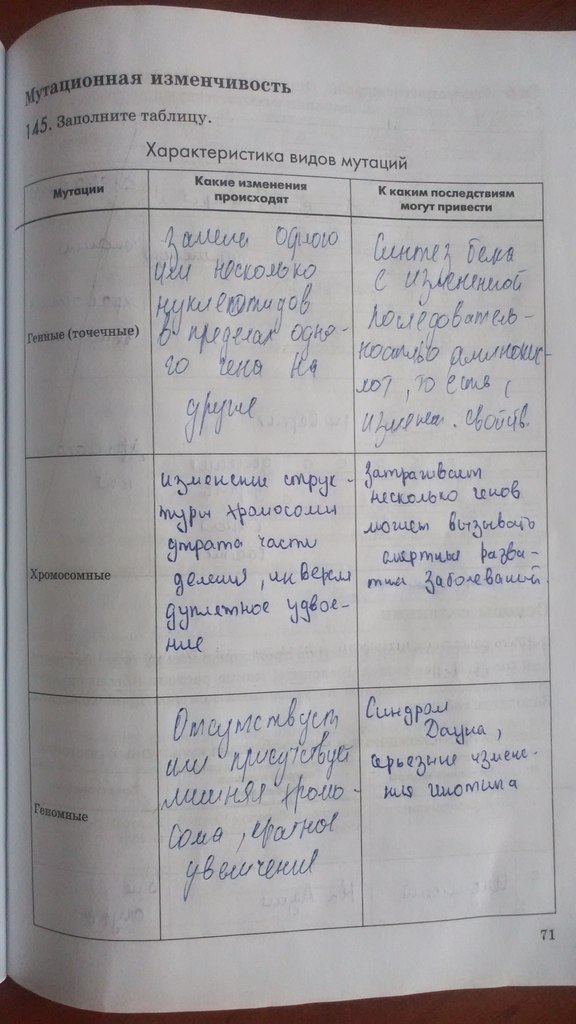 Мутационная изменчивость
145. Заполните таблицу.
Характеристика видов мутаций
Мутации
Какие изменения
происходят
К каким последствиям
могут привести
Генные (точечные)
замена одного
или несколько
нуклеотидов
в пределах одно-
го гена на
другие
Синтез белка
с измененной
последователь-
ностью аминокис-
лот, то есть
изменен. свойств.
Хромосомные
изменение струк-
туры хромосомы
утрата части
делеция, инверси
дуплетное удвое-
ние
затрагивает
несколько генов
может вызывать
смертных разви-
тия заболеваний.
Геномные
Отсутствует
или присутствует
лишняя хромо-
сома, кратное
увеличение
Синдром
Дауна,
серьезные измене-
ния
71